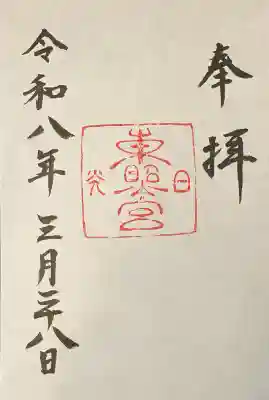 奉拝
日光
東照宮
令和八年三月二十八日